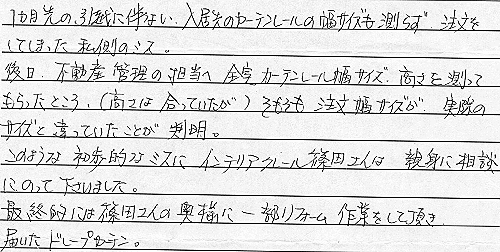 1カ月先の引越に伴ない、入居先のカーテンレールの幅サイズも測らず 注文を
してしまった 私側のミス。
後日、不動産管理の担当へ 全室カーテンレール幅サイズ、高さを測って
もらったところ、(高さは合っていたが) そもそも 注文幅サイズが、実際の
サイズと違っていたことが 判明。
このような 初歩的なミスに インテリアパール篠田さんは 親身に相談
にのって下さいました。
最終的には篠田さんの奥様に一部リフォーム 作業をして頂き、
届いたドレープカーテン。